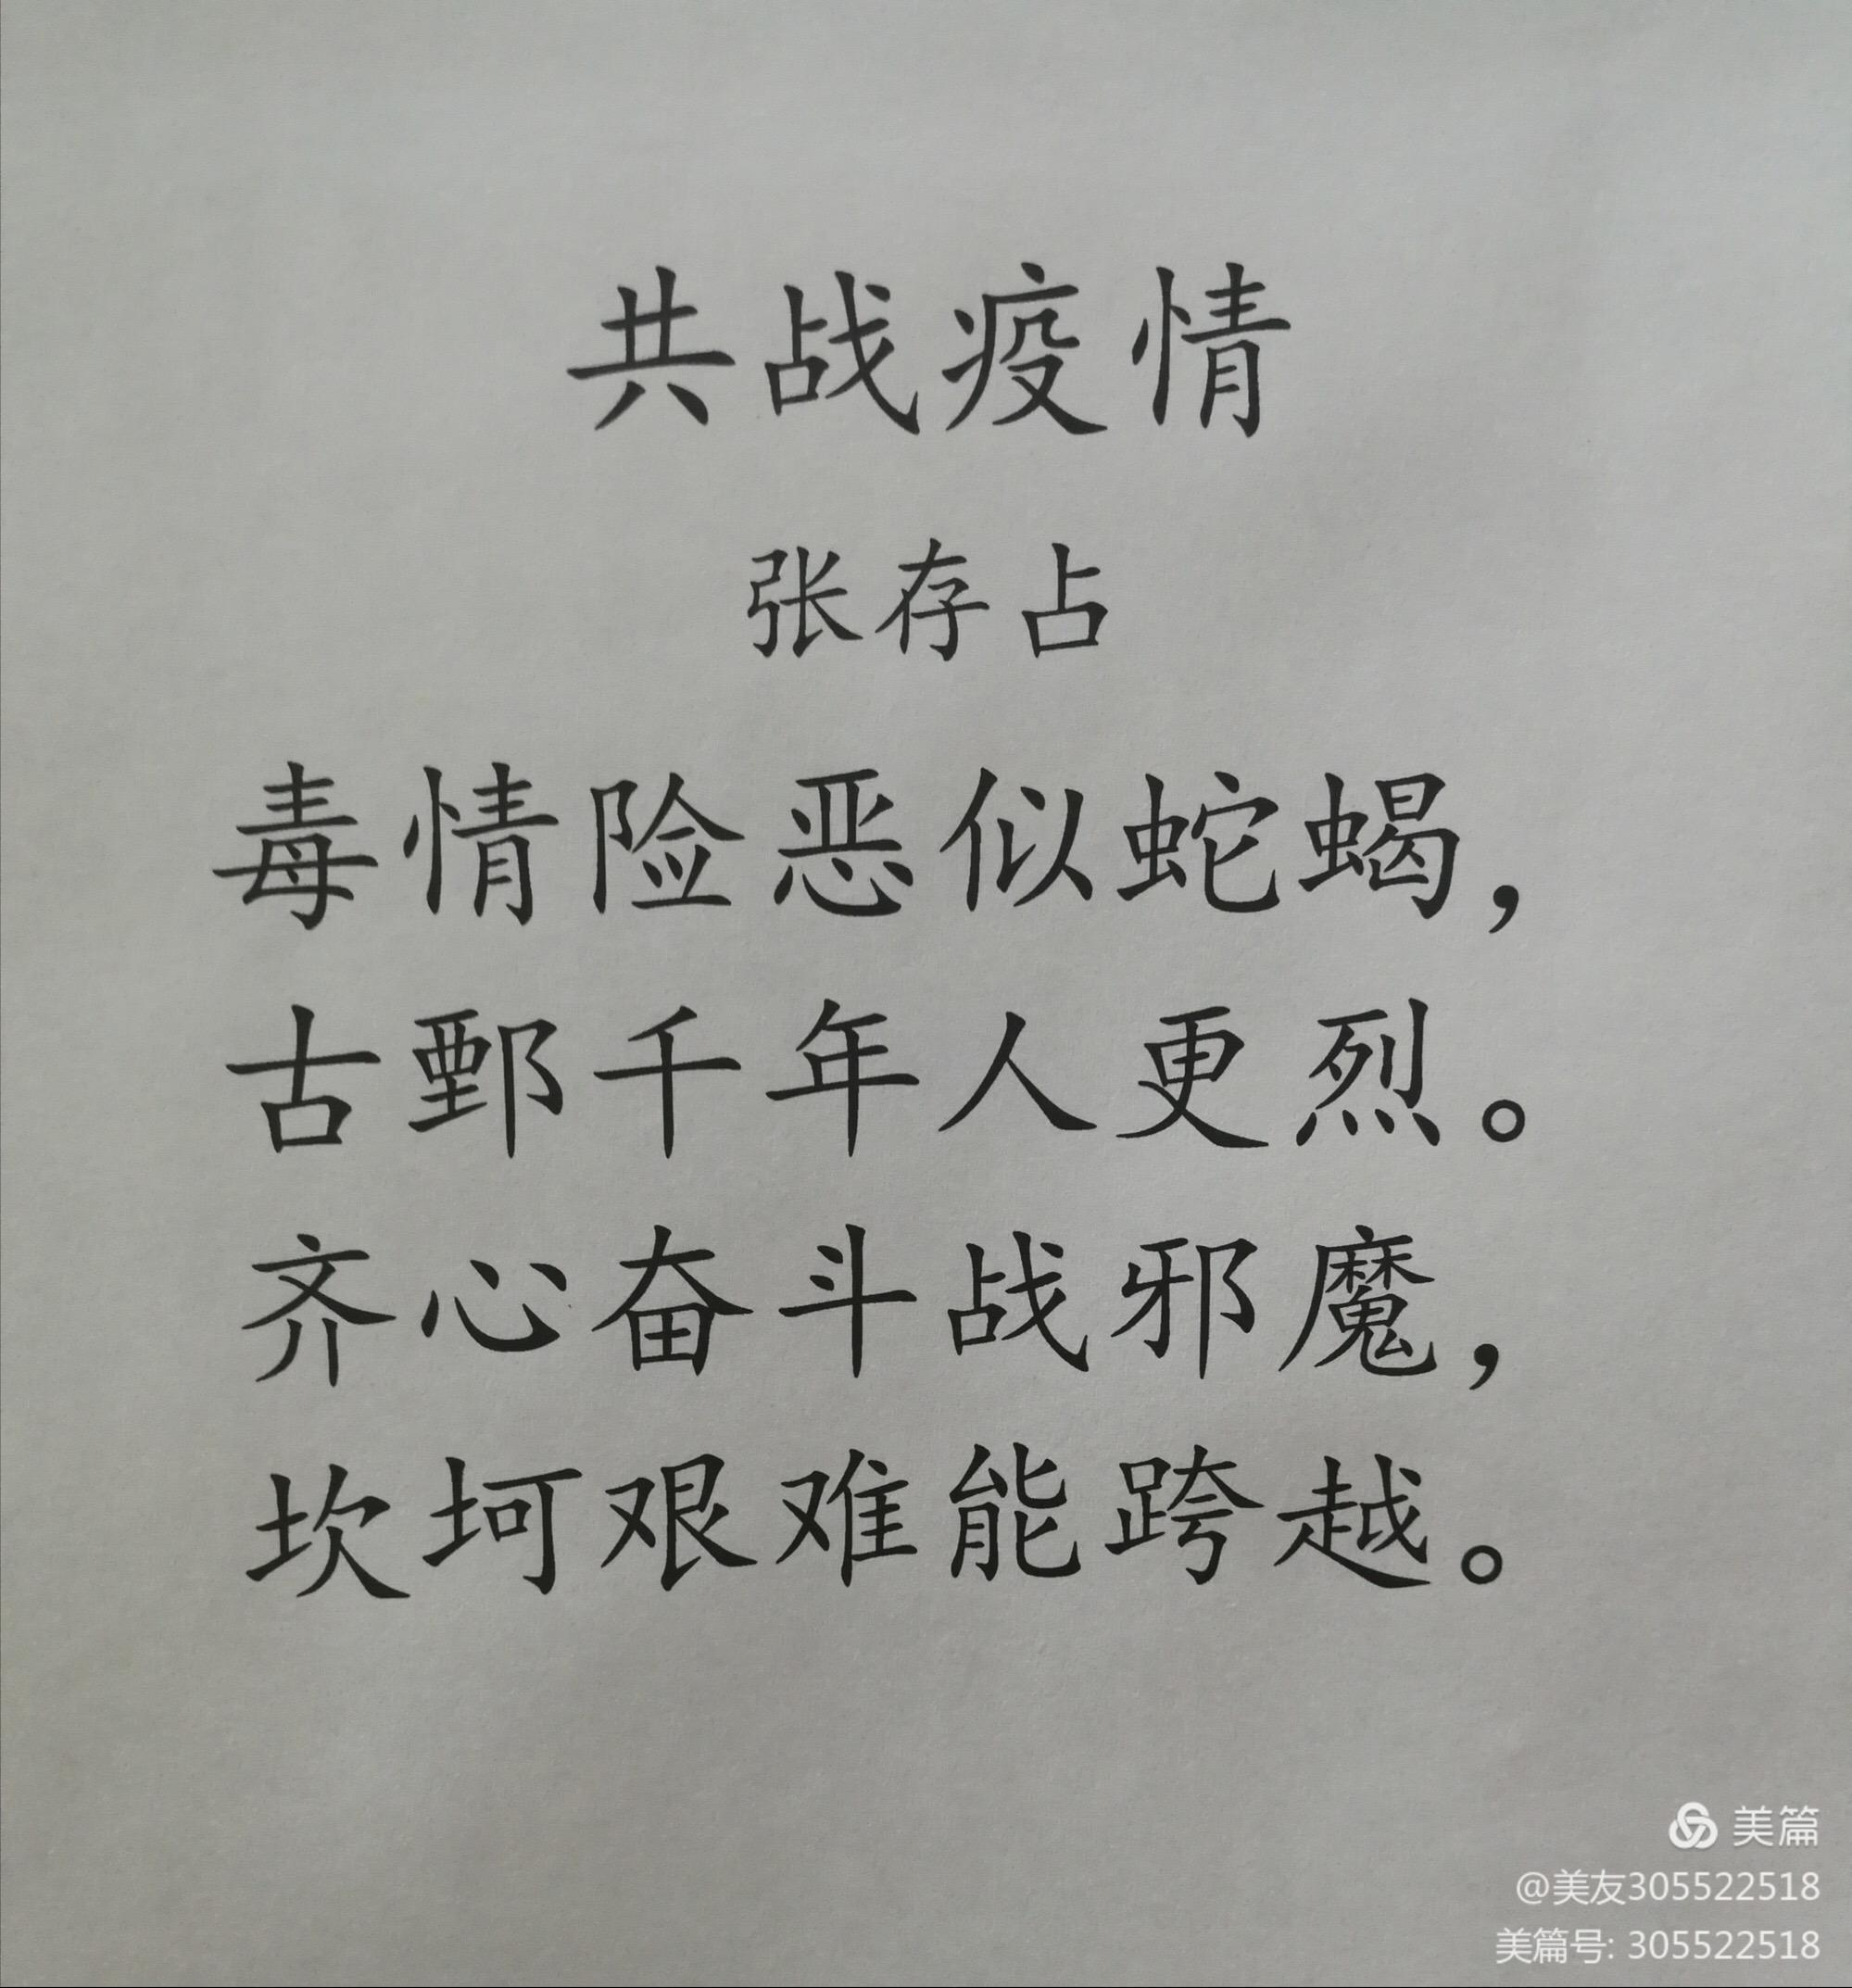 共战疫情
张存占
毒情险恶似蛇蝎，
古鄄千年人更烈。
齐心奋斗战邪魔，
坎坷艰难能跨越。
美篇
@美友305522518
美篇号: 305522518